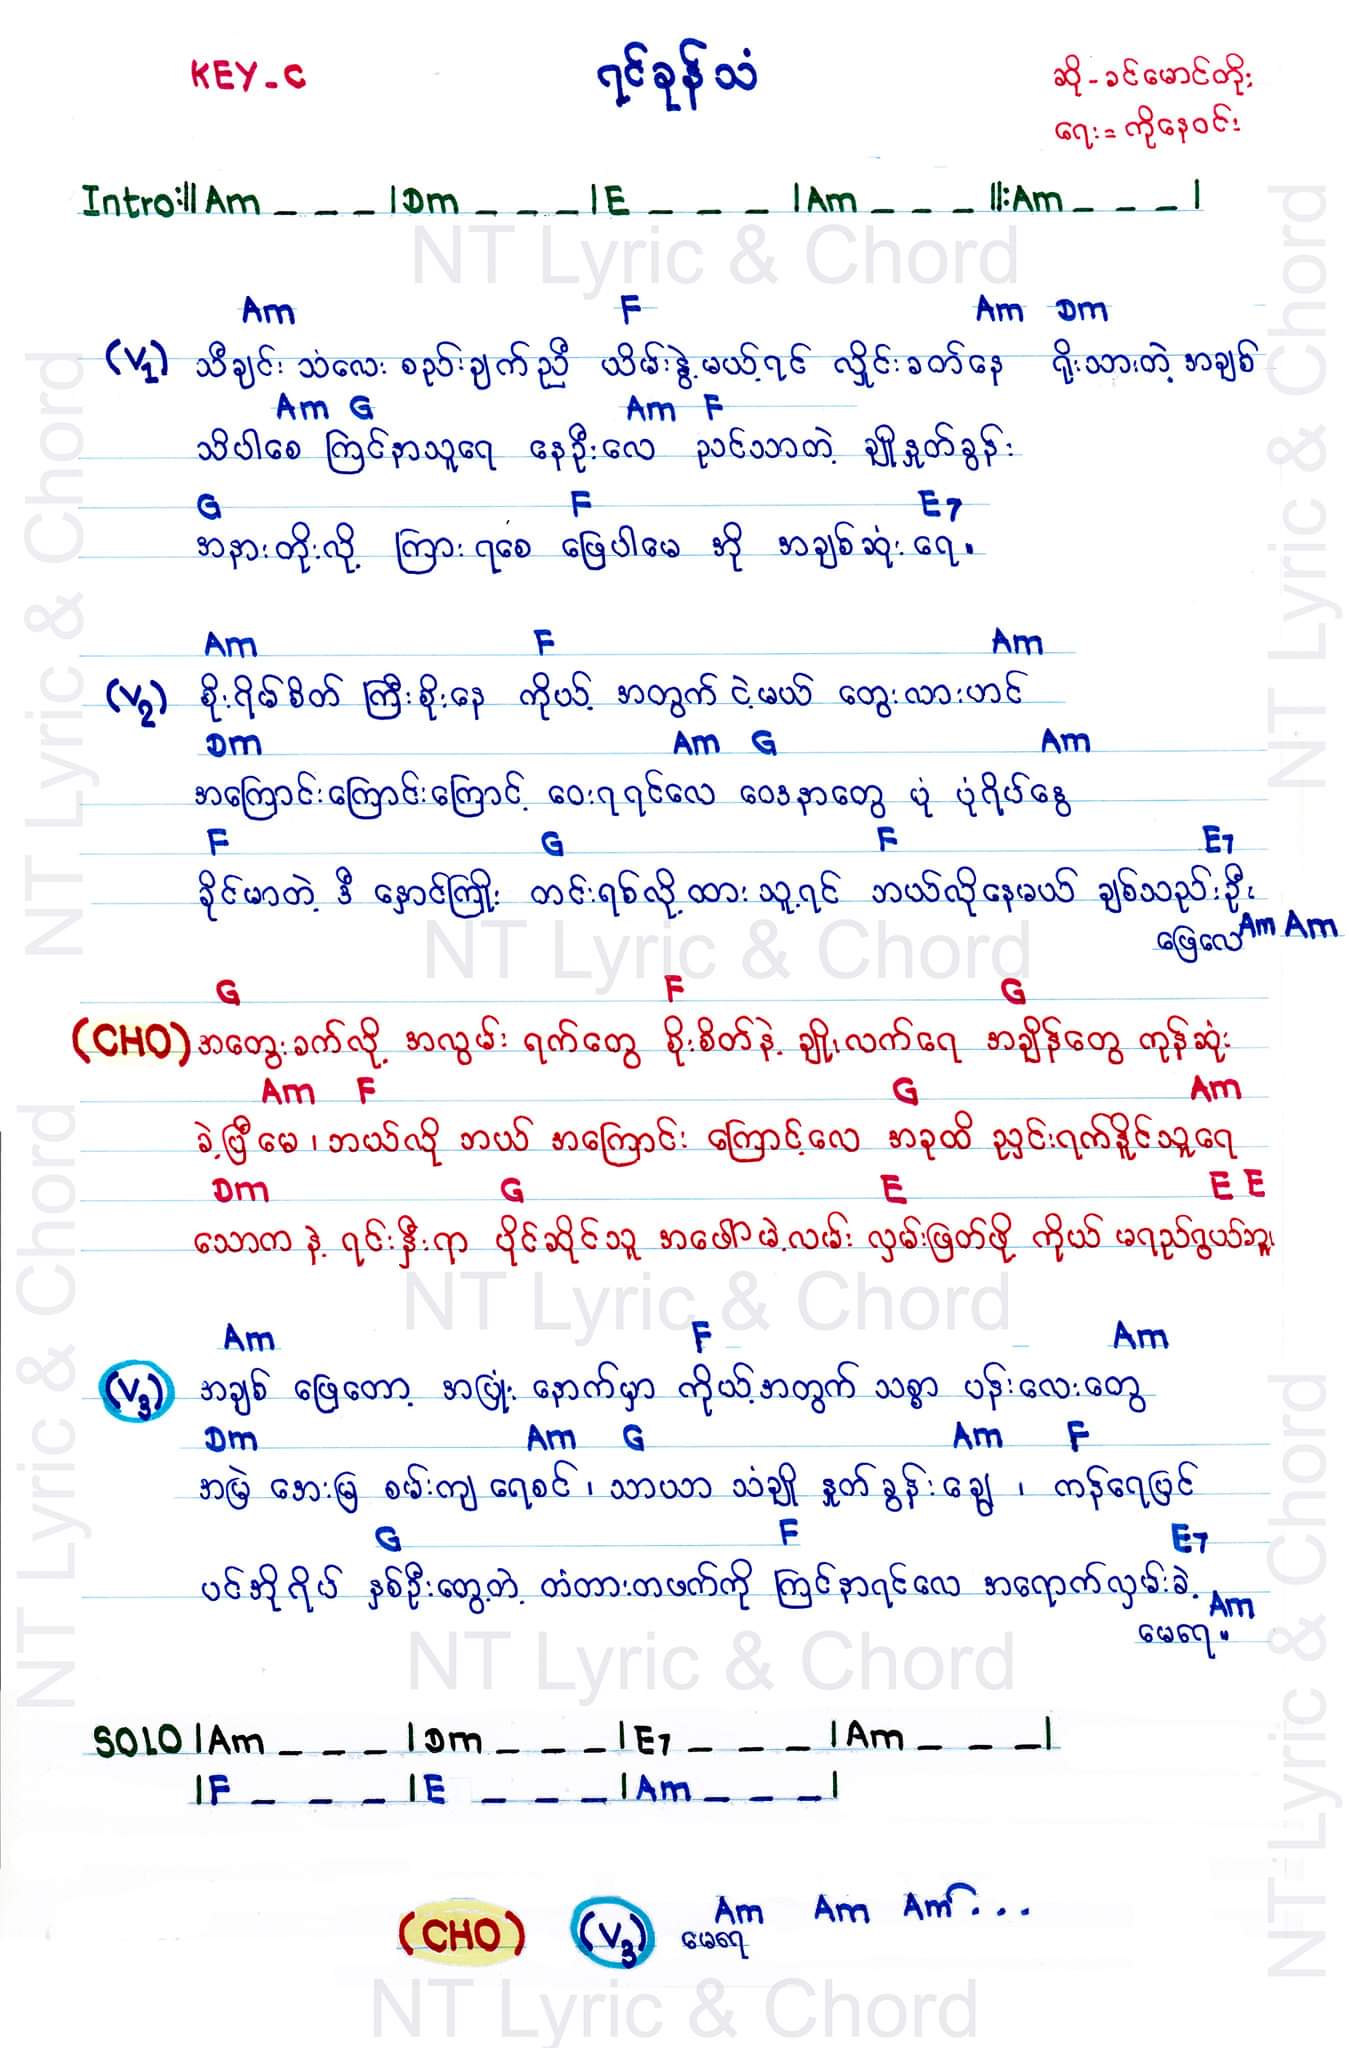 KEY-C
ရင်ခုန်သံ
ဆို-ခင်မောင်တိုး
ရေး=ကိုနေဝင်း
Intro:|| Am _ _ _ | Dm _ _ _ | E _ _ _ | Am _ _ _ ||:Am _ _ _ |
NT Lyric & Chord
Am F Am Dm
(V1) သီချင်း သံလေး စည်းချက်ညီ ယိမ်းနွဲ့မယ့်ရင် လှိုင်းခတ်နေ ရိုးသားတဲ့ အချစ်
Am G Am F
သိပါစေ ကြင်နာသူရေ နေဦးလေ ညင်သာတဲ့ ချိုနှုတ်ခွန်း
G F E7
အနားတိုးလို့ ကြားရစေ ဖြေပါမေ အို အချစ်ဆုံးရေ။
Am F Am
(V2) စိုးရိမ်စိတ် ကြီးစိုးနေ ကိုယ့် အတွက် ငဲ့မယ် တွေးလားဟင်
Dm Am G Am
အကြောင်းကြောင်းကြောင့် ဝေးရရင်လေ ဝေဒနာတွေ ပုံ ပုံရိပ်နွေ
F G F E7
ခိုင်မာတဲ့ ဒီ နှောင်ကြိုး တင်းရစ်လို့ ထားသူ့ရင် ဘယ်လိုနေမယ် ချစ်သည်းဦး
ဖြေလေ Am Am
NT Lyric & Chord
G F G
(CHO) အတွေးခက်လို့ အလွမ်း ရက်တွေ စိုးစိတ်နဲ့ ချိုးလက်ရေ အချိန်တွေ ကုန်ဆုံး
Am F G Am
ခဲ့ပြီ မေ၊ ဘယ်လို ဘယ် အကြောင်း ကြောင့်လေ အခုထိ ညှင်းရက်နိူင်သူရေ
Dm G E E E
သောက နဲ့ ရင်းနှီးရာ ပိုင်ဆိုင်သူ အဖေါ်မဲ့လမ်း လှမ်းဖြတ်ဖို့ ကိုယ် မရည်ရွယ်ဘူး
NT Lyric & Chord
Am F Am
(V3) အချစ် ဖြေတော့ အပြုံး နောက်မှာ ကိုယ့်အတွက် သစ္စာ ပန်းလေးတွေ
Dm Am G Am F
အမြဲ အေးမြ စမ်းကျ ရေစင်၊ သာယာ သံချို နှုတ်ခွန်းချွေ၊ ကန်ရေပြင်
G F E7
ပင်အိုရိပ် နှစ်ဦးတွေ့တဲ့ တံတားတဖက်ကို ကြင်နာရင်လေ အရောက်လှမ်းခဲ့
မေရေ။ Am
NT Lyric & Chord
SOLO | Am _ _ _ | Dm _ _ _ | E7 _ _ _ | Am _ _ _ |
| F _ _ _ | E _ _ _ | Am _ _ _ |
(CHO) (V3) မေရေ Am Am Am...
NT Lyric & Chord
NT Lyric & Chord
NT Lyric & Chord
NT Lyric & Chord
NT Lyric & Chord
NT Lyric & Chord